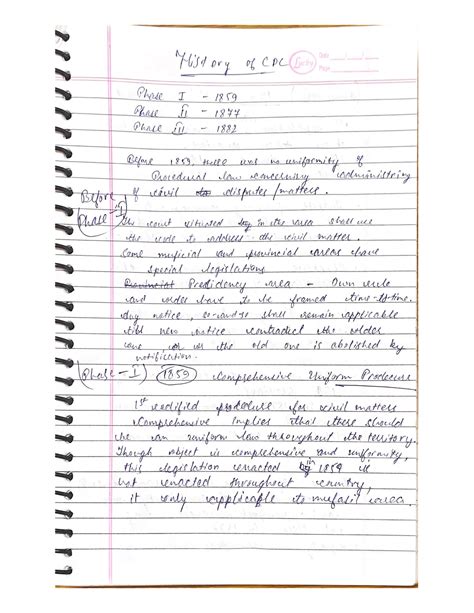 History of CPC
Date
Page
Phase I - 1859
Phase II - 1877
Phase III - 1882
Before 1859, there was no uniformity of
Procedural law concerning administring
of civil disputes/matters.
Before
Phase-I
The court situated in the area shall
the code to address the civil matter.
Some and provincial areas have
special legislations.
Presidency area - Own rule
and order have to be framed time-to-time.
Any notice, shall remain applicable
till new notice contradict the older
one or the old one is abolished by
notification.
Phase-I 1859 Comprehensive Uniform
1st codified procedure for civil matters
Comprehensive implies that there should
be an uniform law throughout the territory.
Though object is comprehensive and uniformity,
this legislation enacted in 1859 is
not enacted throughout country,
it only applicable to mufasil area.